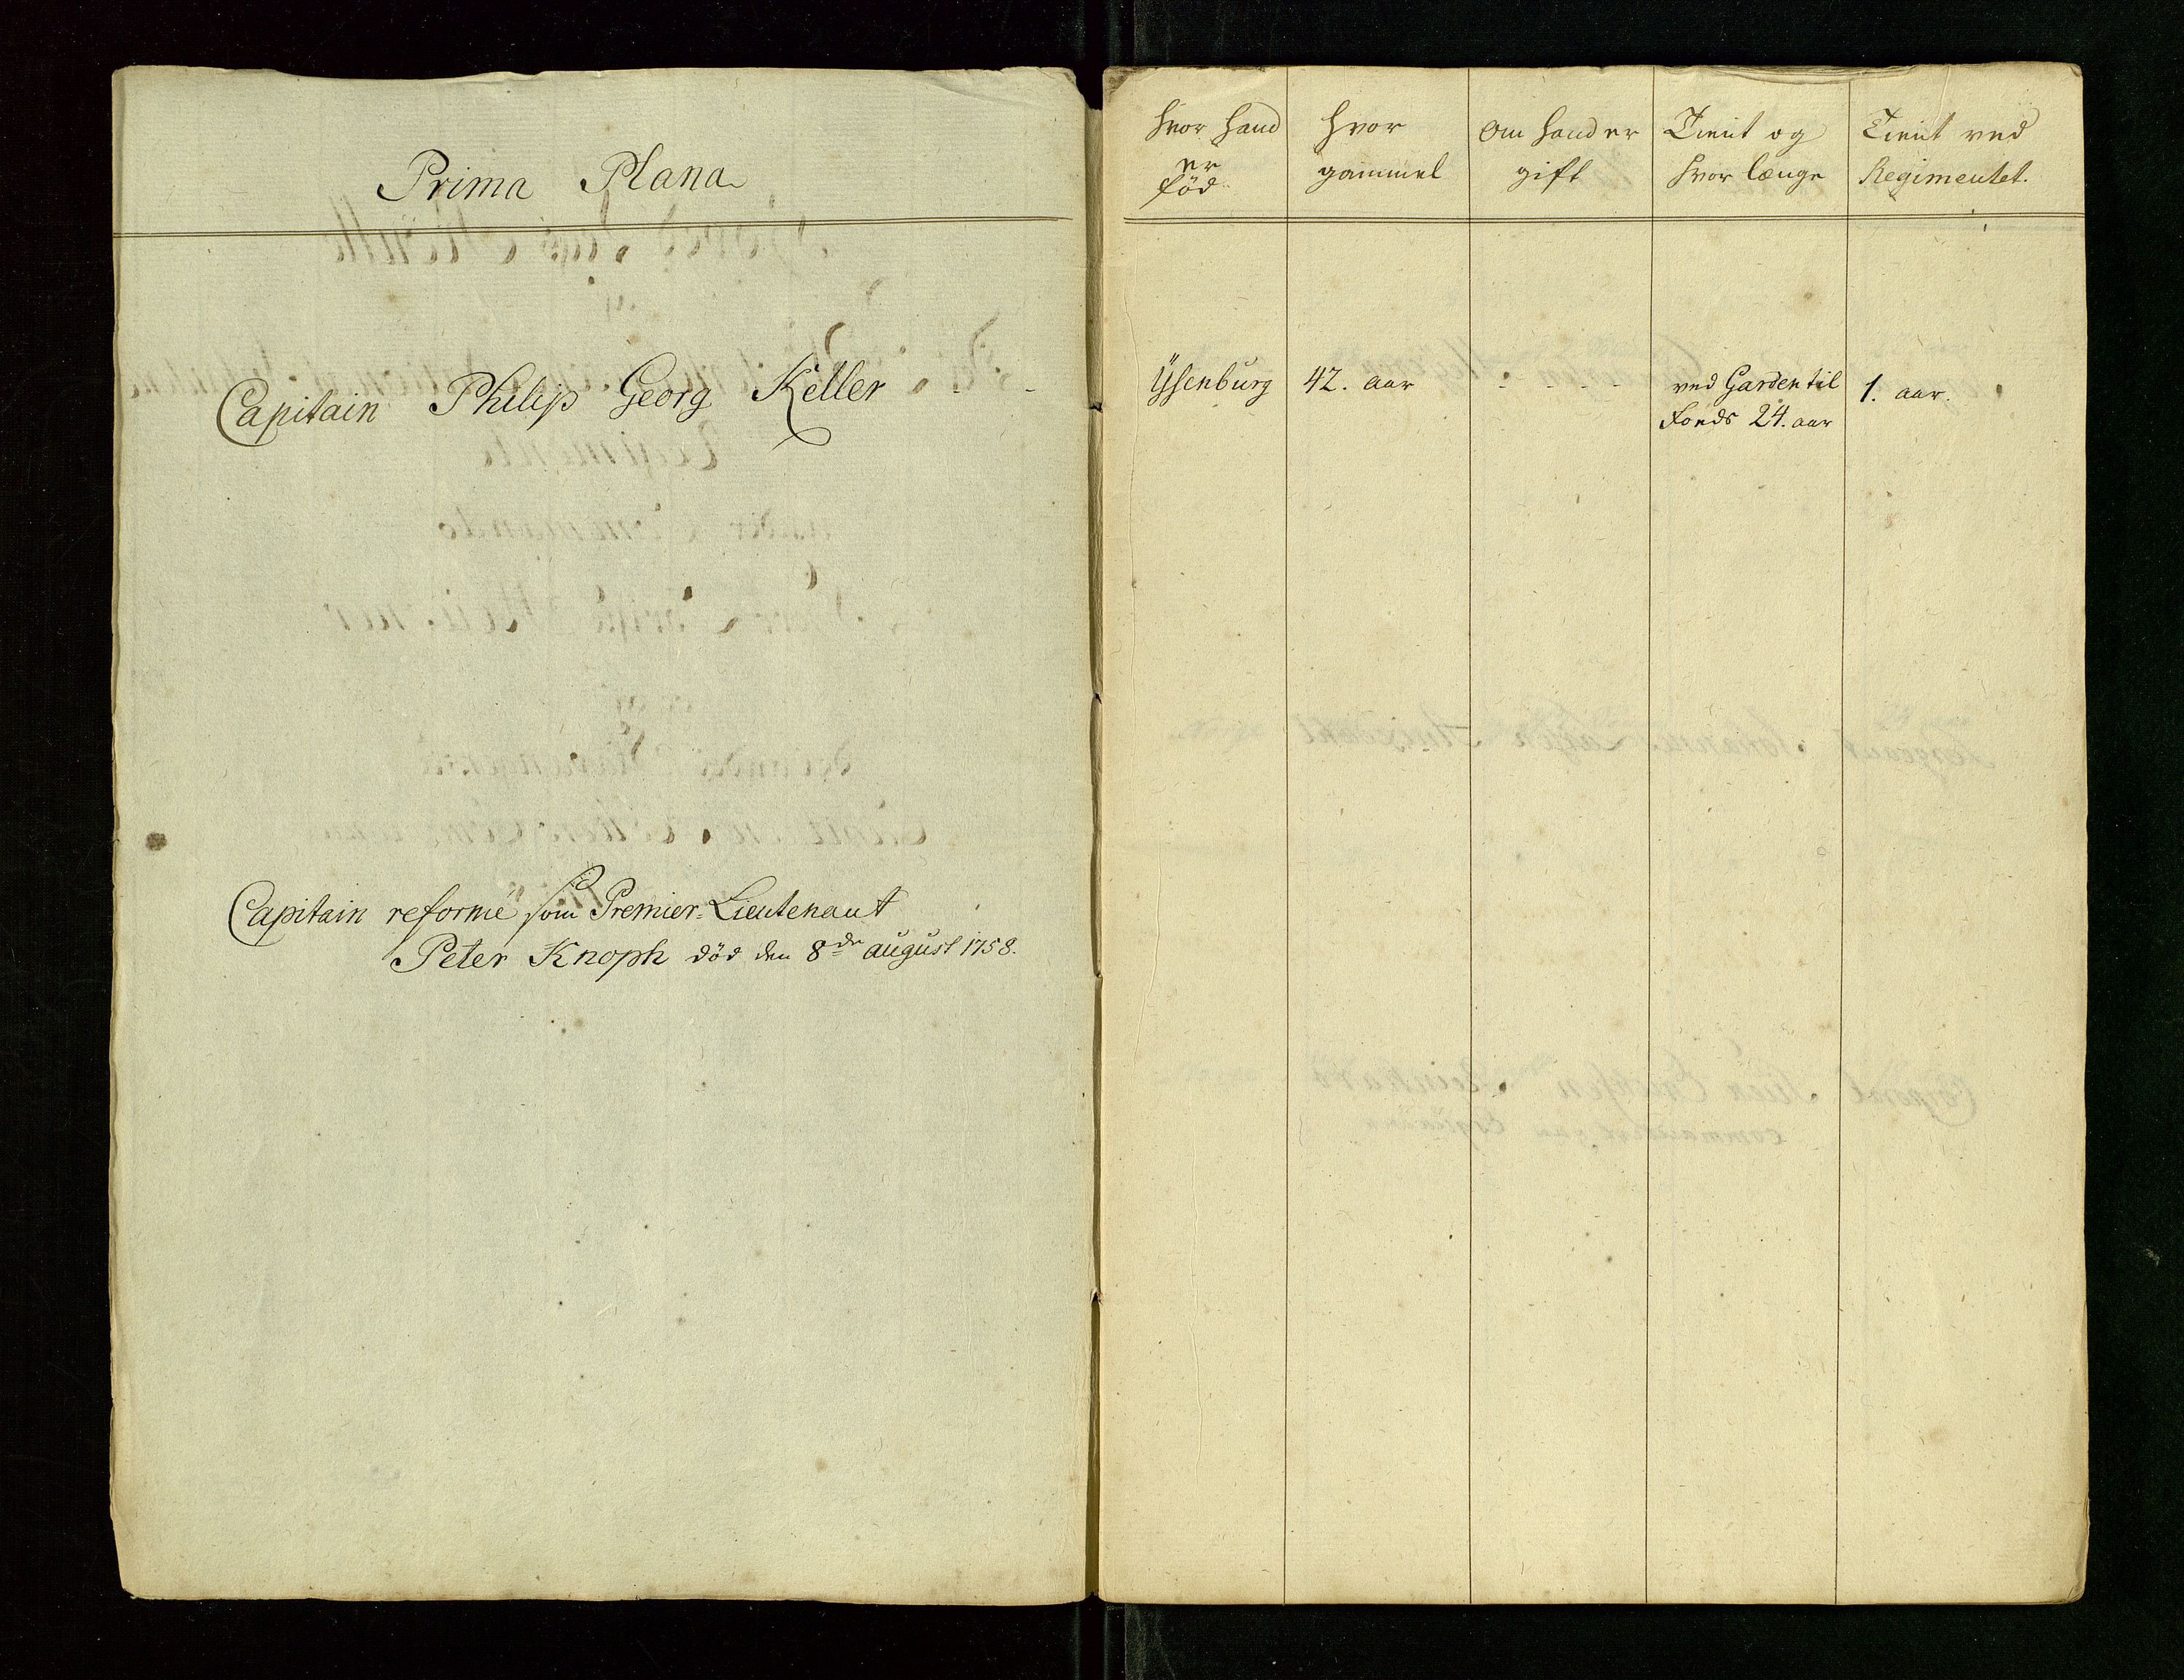 Prima Plana
Capitain Philip Georg Keller - -
Capitain reformé som Premier-Lieutenant
Peter Knoph död den 8de august 1758.
hvor hand
er
föd
hvor
gammel
om hand er
gift
Tient og
hvor længe
Tient ved
Regimentet.
Ÿsenburg
42. aar
- - - -
ved Garden til
Fords 24. aar
1. aar.